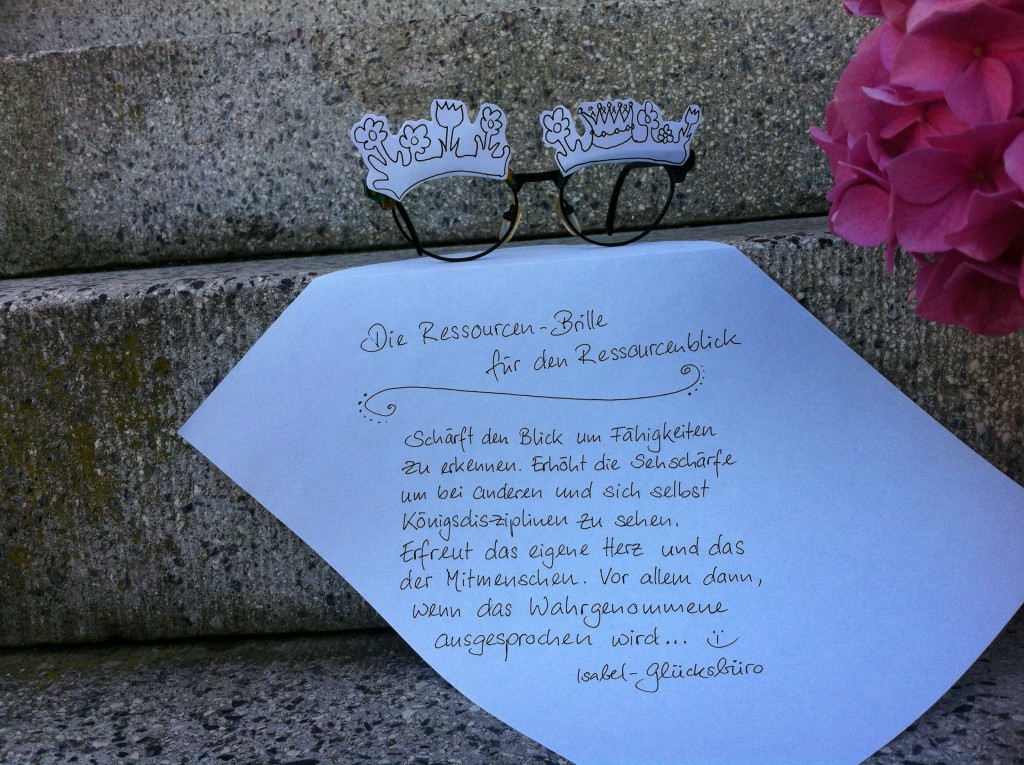 Die Ressourcen-Brille
für den Ressourcenblick
Schärft den Blick um Fähigkeiten
zu erkennen. Erhöht die Sehschärfe
um bei anderen und sich selbst
Königsdisziplinen zu sehen.
Erfreut das eigene Herz und das
der Mitmenschen. Vor allem dann,
wenn das Wahrgenommene
ausgesprochen wird...
Isabel-Glücksbüro